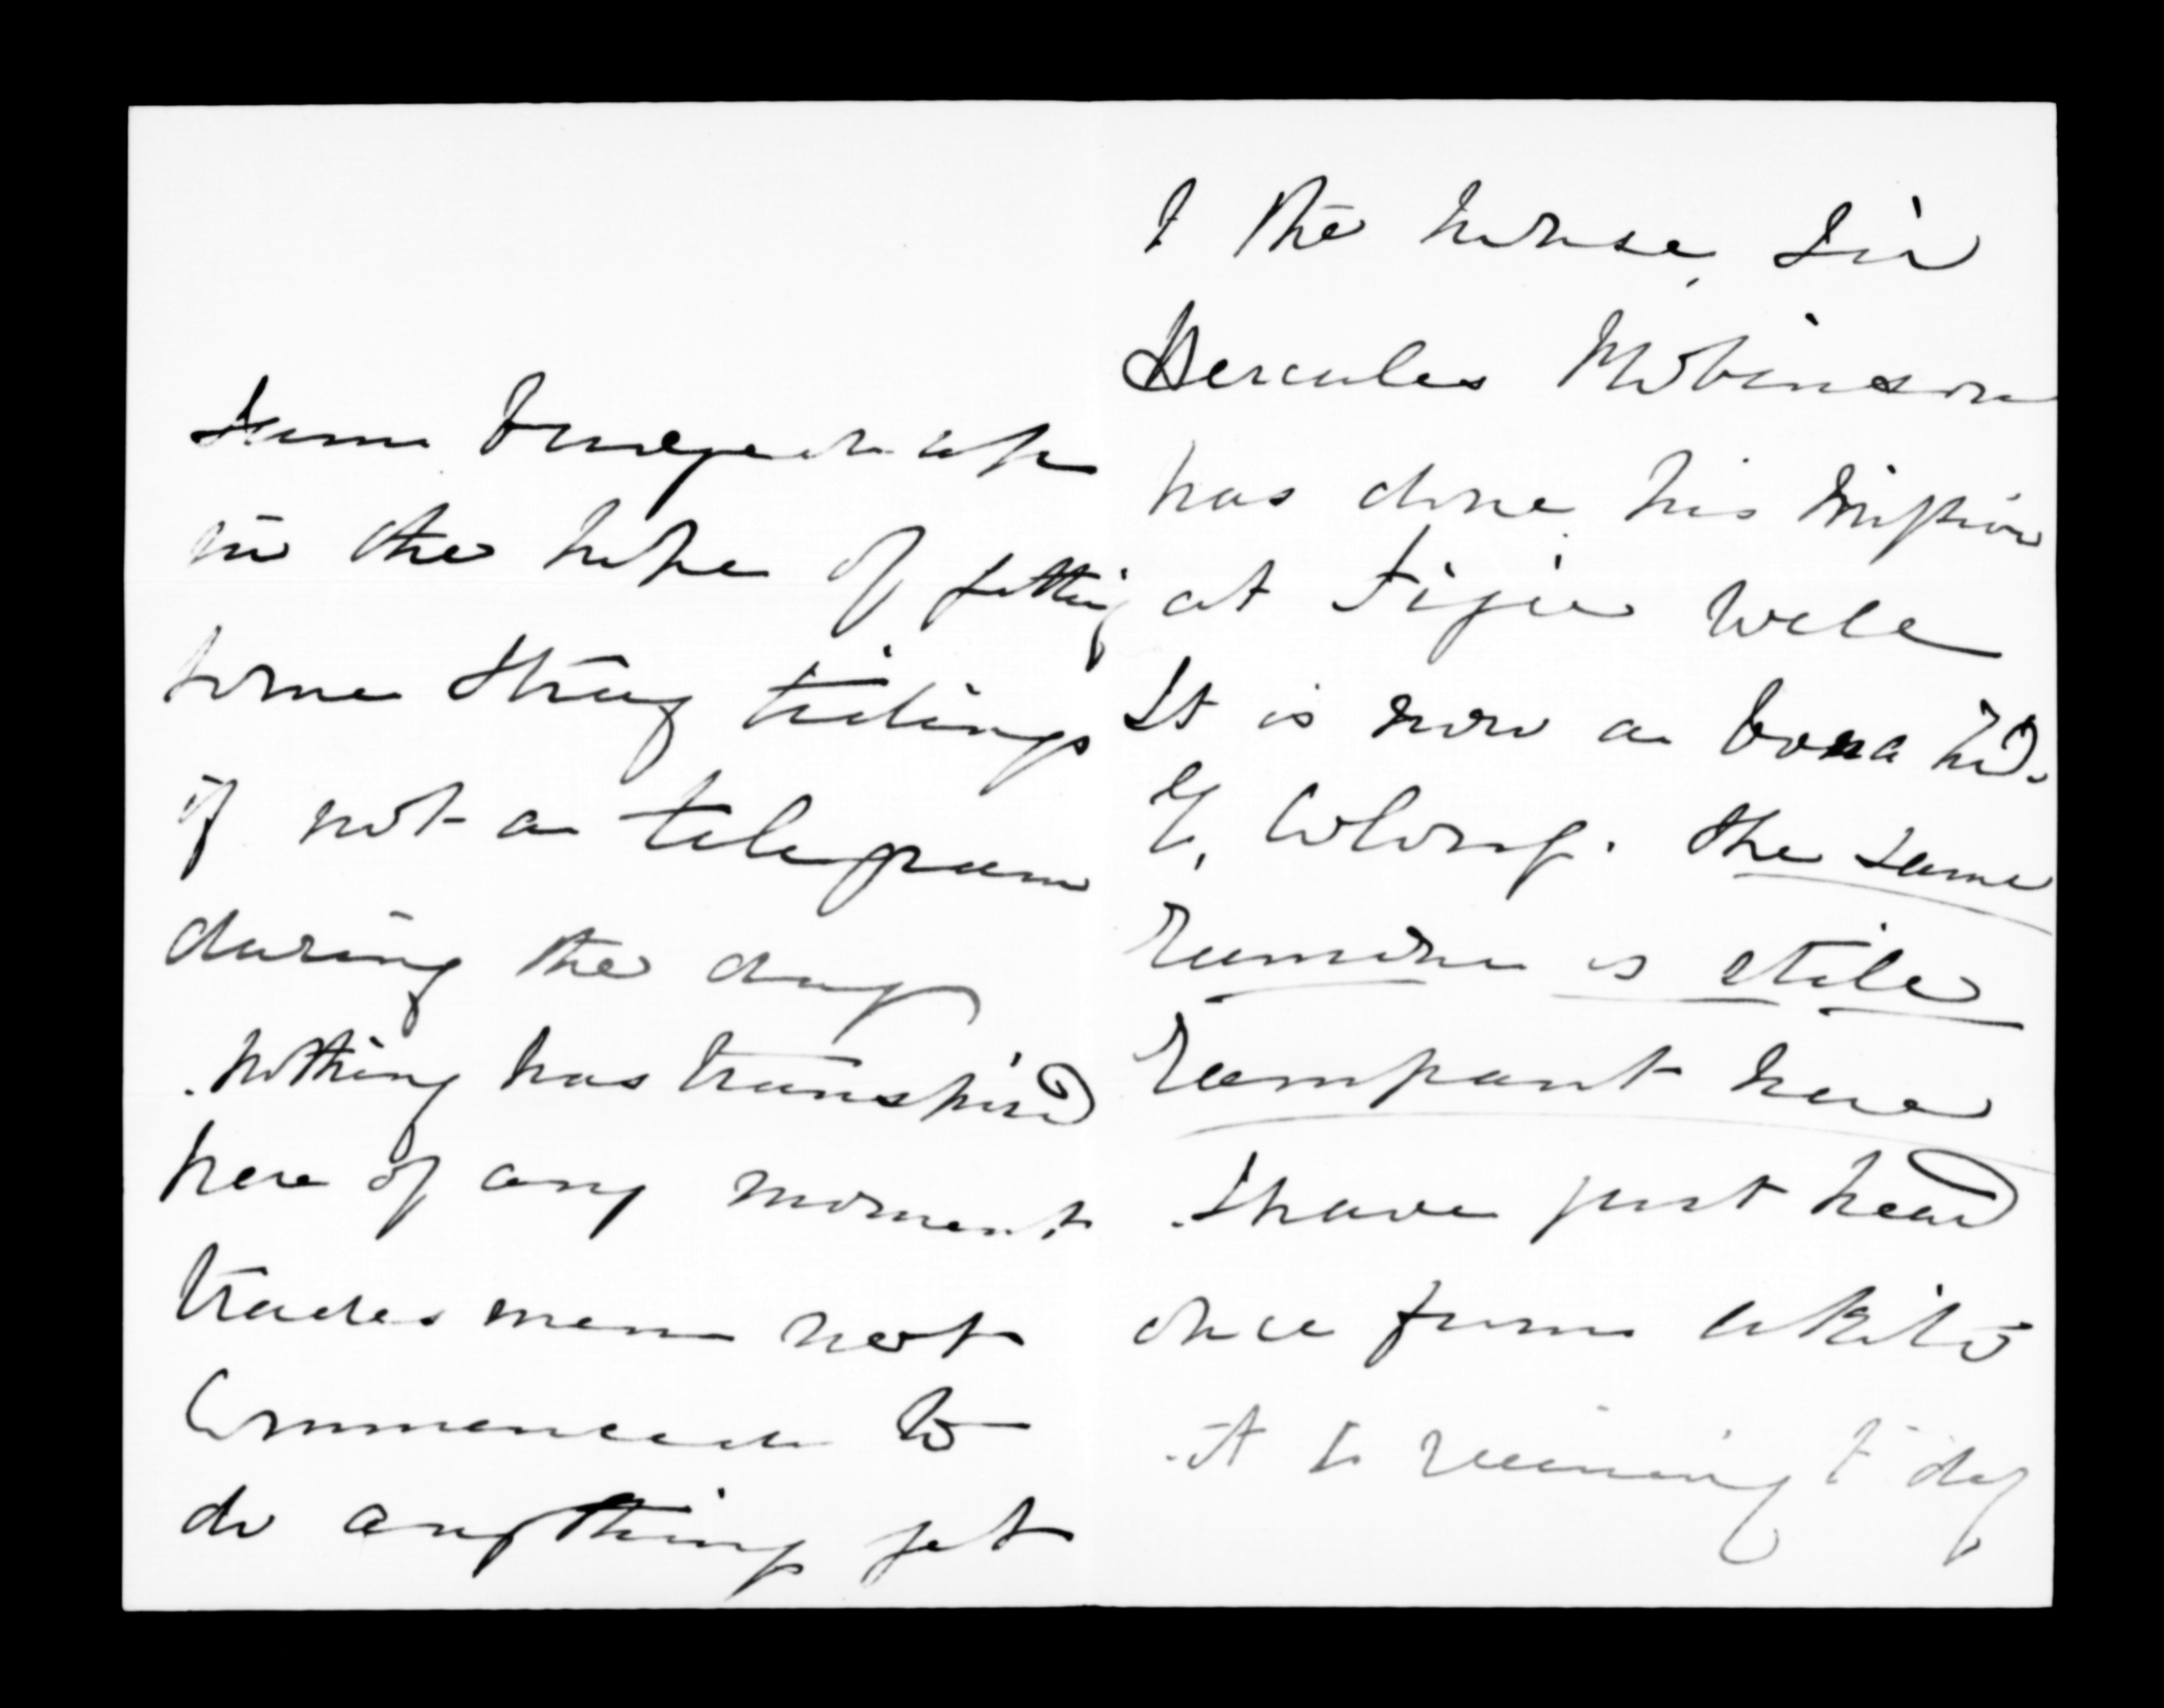 in the hope of getting
some thing tidings
if not a telegram
during the day
. Nothing has transpired
here of any moment
tradesmen not
Commenced to
do anything yet
t the house, Sir
Hercules Robinson
has done his mission
at Fijis well
It is now a bona fid.
Colony. the same
rumour is still
rampant here
. I have just heard
once from
. it is raining t day